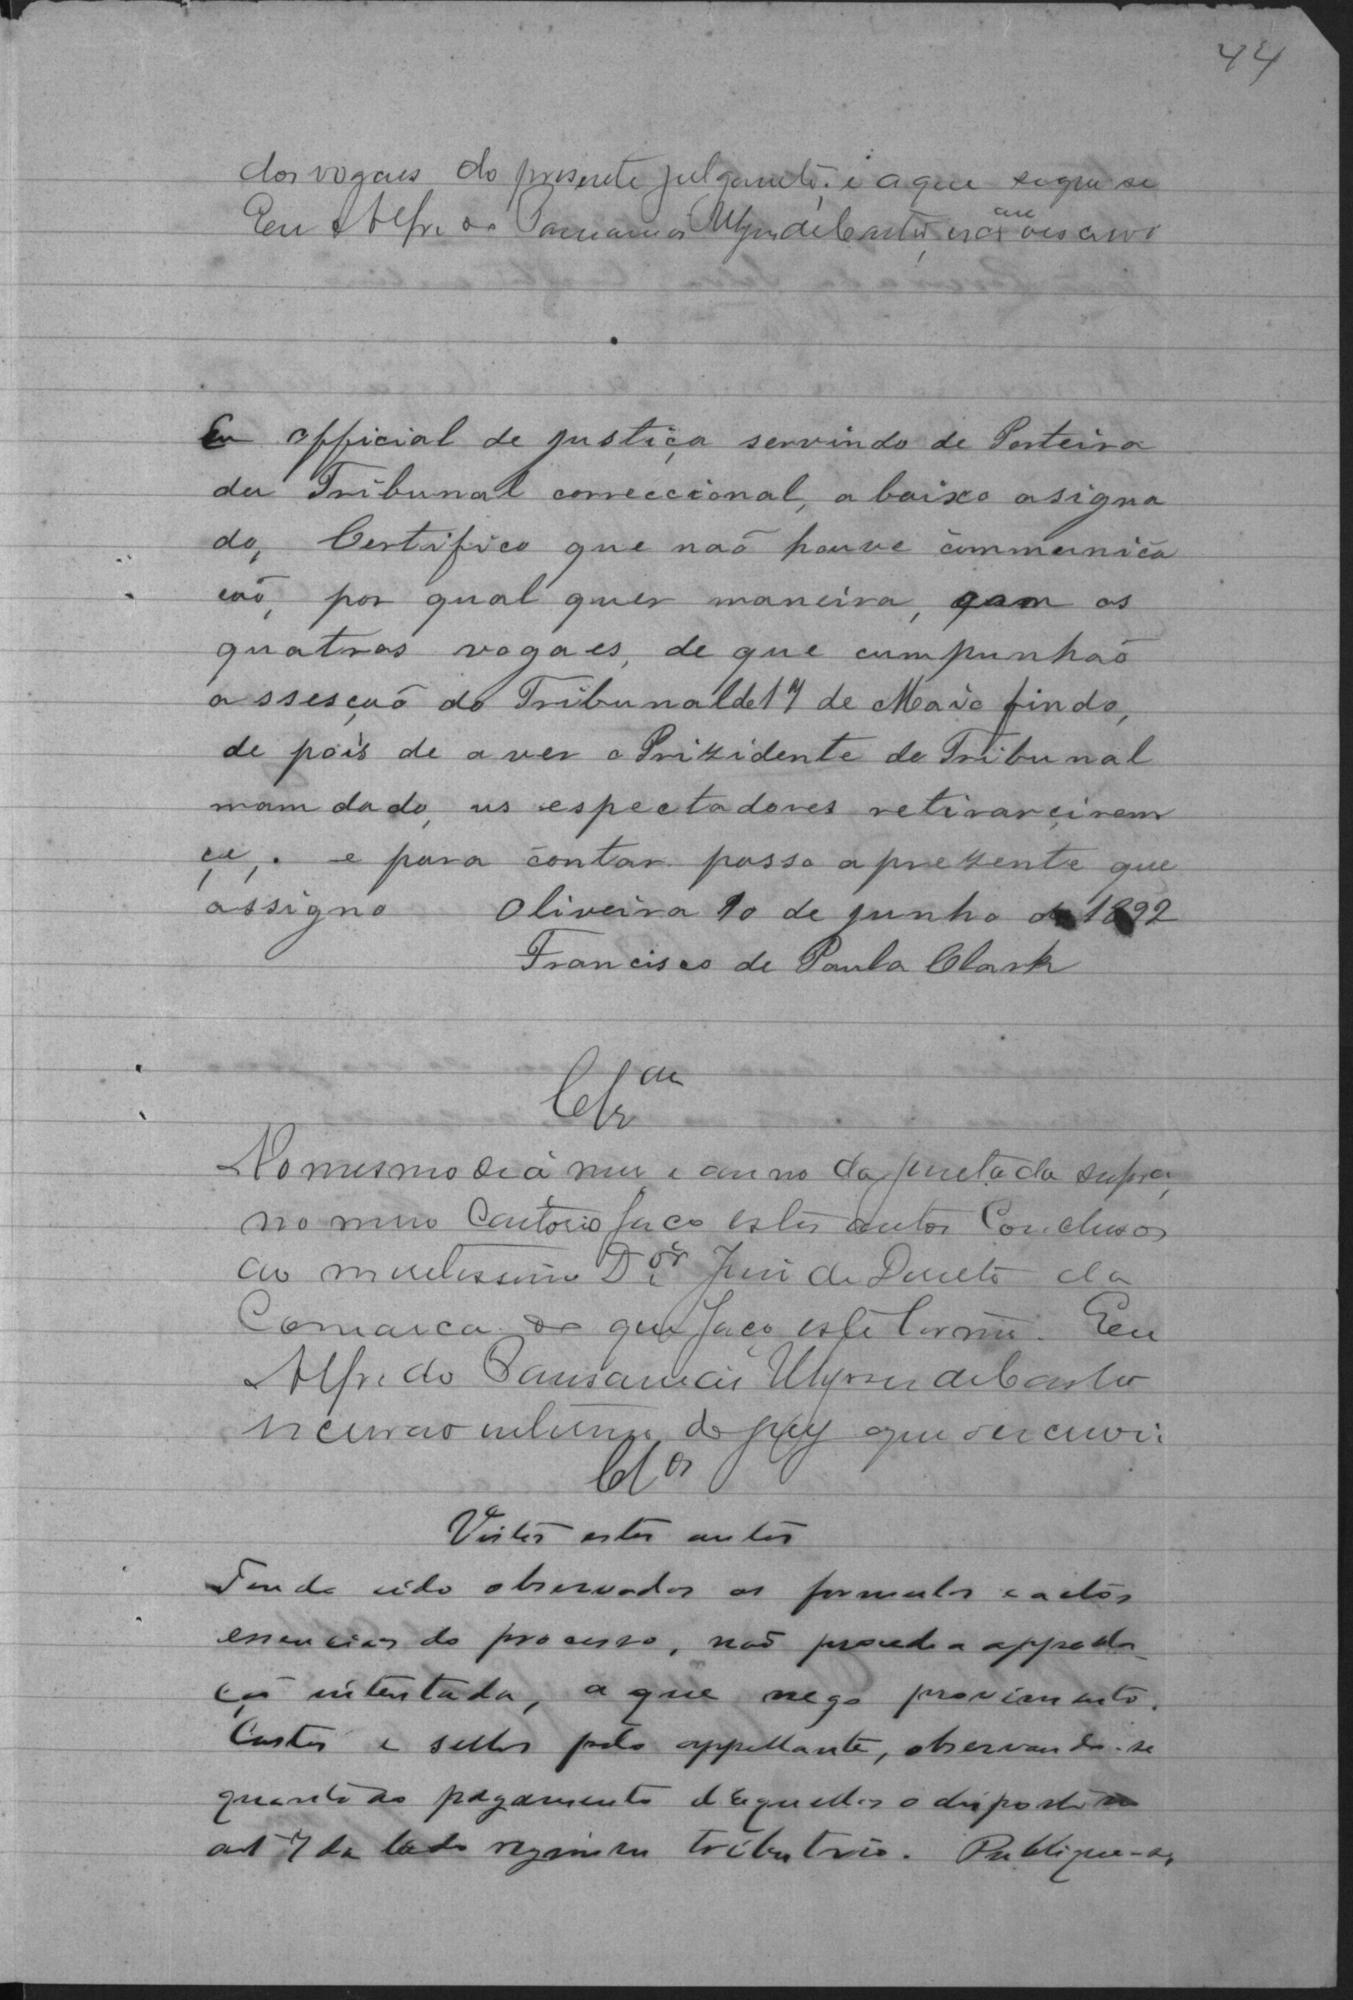 44
dos vogaes do presente julgamento, é a que segue se
Eu Alfredo Pausanias Ulysses de Castro, escrivão escrevi
Eu official de justiça servindo de Porteiro
do Tribunal correccional, abaixo asigna
do, Certifico que naõ houve communica
caõ, por qual quer maneira, com os
quatros vogaes, de que cumpunhaõ
a ssesçaõ do Tribunal de 17 de Maio findo,
de pois de aver o Prizidente do Tribunal
mamdado, us espectadores retirarçirem
çe, . e para contar passo aprezente que
assigno Oliveira 10 de junho de 1892
Francisco de Paula Clark
Clsam
No mesmo dia mez e anno da juntada supra,
no meu Cartorio faço estes autos Conclusos
ao meretissimo Dor Juiz de Direito da
Comarca do que faço este termo. Eu
Alfredo Pausanias Ulysses de Castro
escrivão interino do jury que o escrevi:
Clos
Vistos estes autos
Tendo sido observados as formulas e actos
essenciaes do processo, naõ procede a appella-
çaõ intentada, a que nego provimento.
Custas e sellos pelo appellante, observando-se
quanto ao pagamento d'aquellas o disposto no
art 7 da regimen tributario. Publique-se,